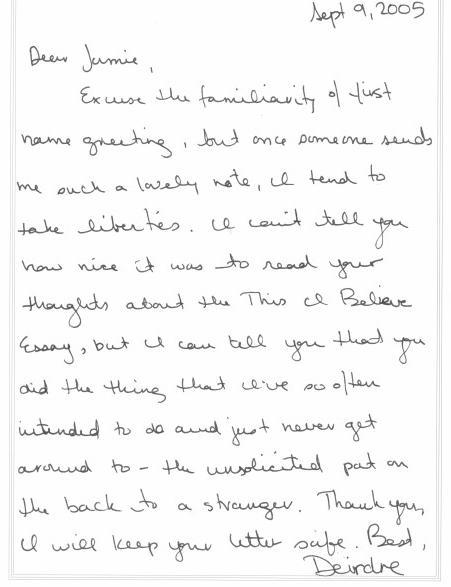 Sept 9, 2005
Dear Jamie,
Excuse the familiarity of first
name greeting, but once someone sends
me such a lovely note, I tend to
take liberties. I can't tell you
how nice it was to read your
thoughts about the This I Believe
Essay, but I can tell you that you
did the thing that I've so often
intended to do and just never get
around to - the unsolicited pat on
the back to a stranger. Thank you,
I will keep your letter safe. Best,
Deirdre